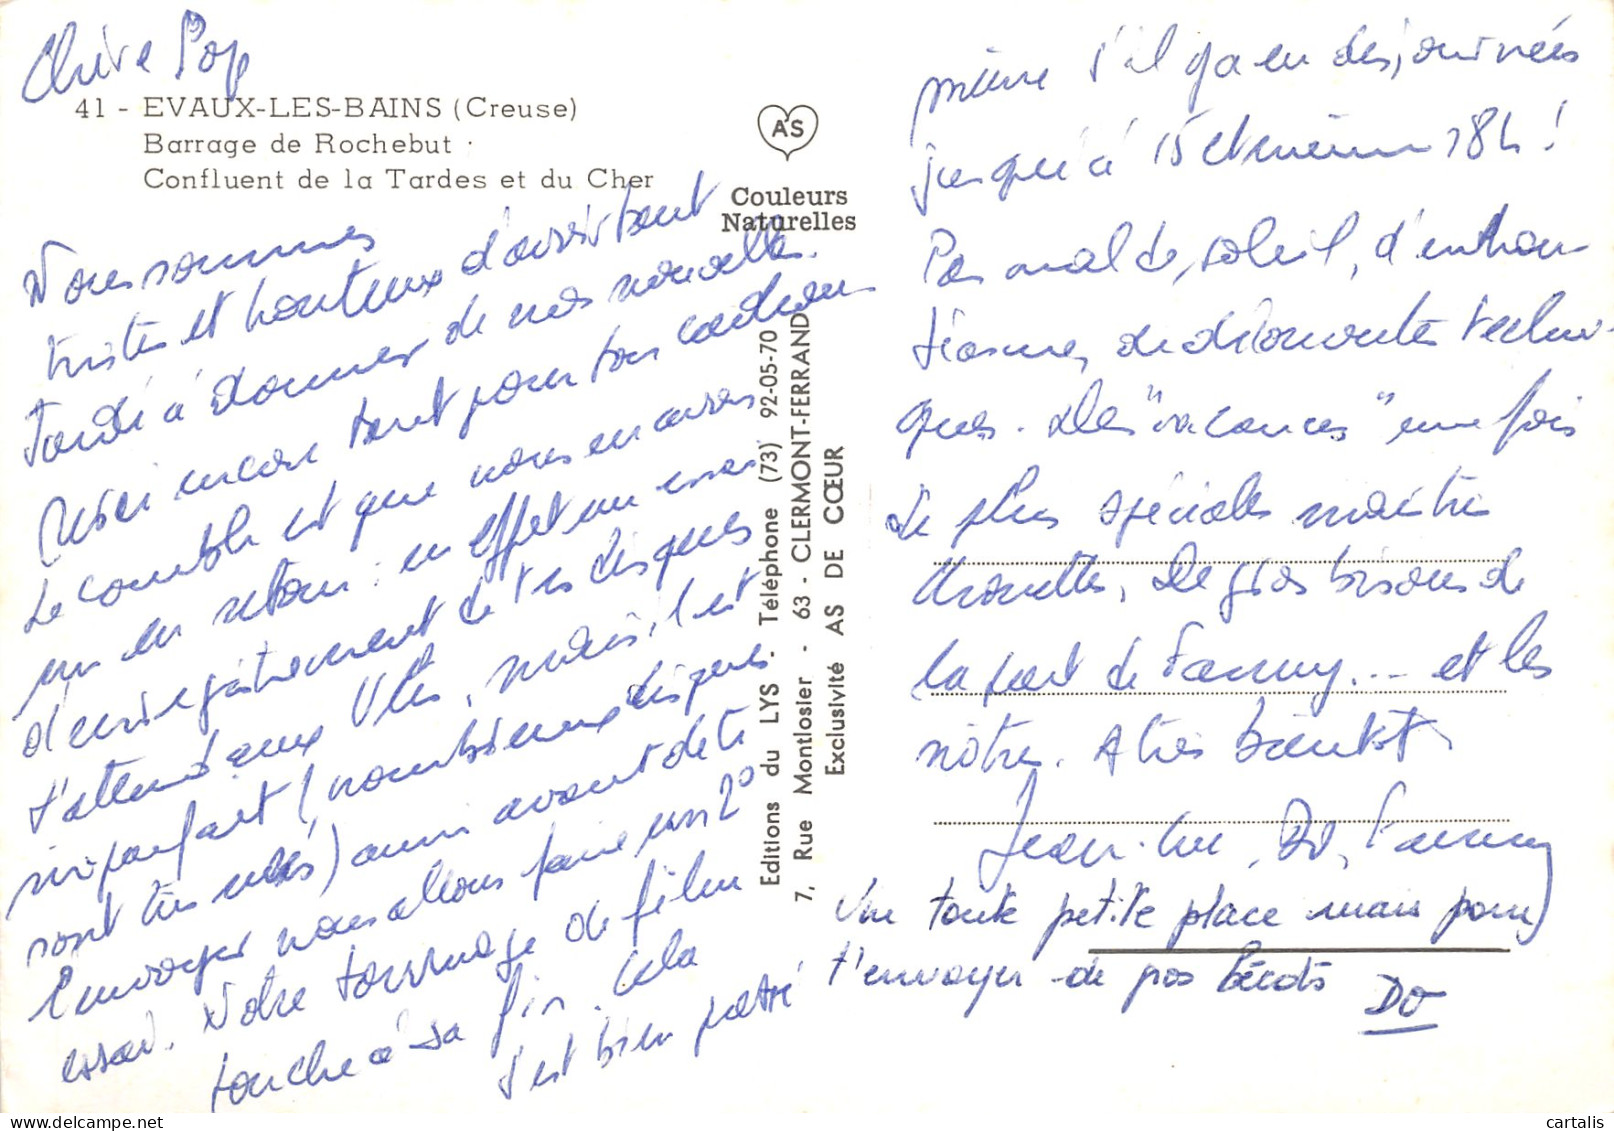 Chère Pop
41 - EVAUX-LES-BAINS (Creuse)
Barrage de Rochebut :
Confluent de la Tardes et du Cher
AS
Couleurs
Naturelles
Nous sommes
tristes et honteux d'avoir tant
tardé à donner de nos nouvelles.
Merci encore tant pour ton cadeau
Le comble est que nous en avons
un en retour : en effet un essai
d'enregistrement de tes disques
t'attend aux Ulis, mais il est
imparfait (nombreux disques
sont très usés) aussi avant de te
l'envoyer nous allons faire un 2°
essai. Notre tournage de film
touche à sa fin. Cela
s'est bien passé
Editions du LYS. Téléphone (73) 92-05-70
7, Rue Montlosier - 63 - CLERMONT-FERRAND
Exclusivité AS DE CŒUR
même s'il y a eu des journées
jusqu'à 15 et même 18h !
Pas mal de soleil, d'enthou-
siasme, de découvertes techni-
ques. Des "vacances" une fois
de plus spéciales mais très
chouettes. De gros bisous de
la part de Fanny... et les
nôtres. A très bientôt
Jean-Luc, Do, Fanny
Une toute petite place mais pour
t'envoyer de gros bécots
DO
cartalis